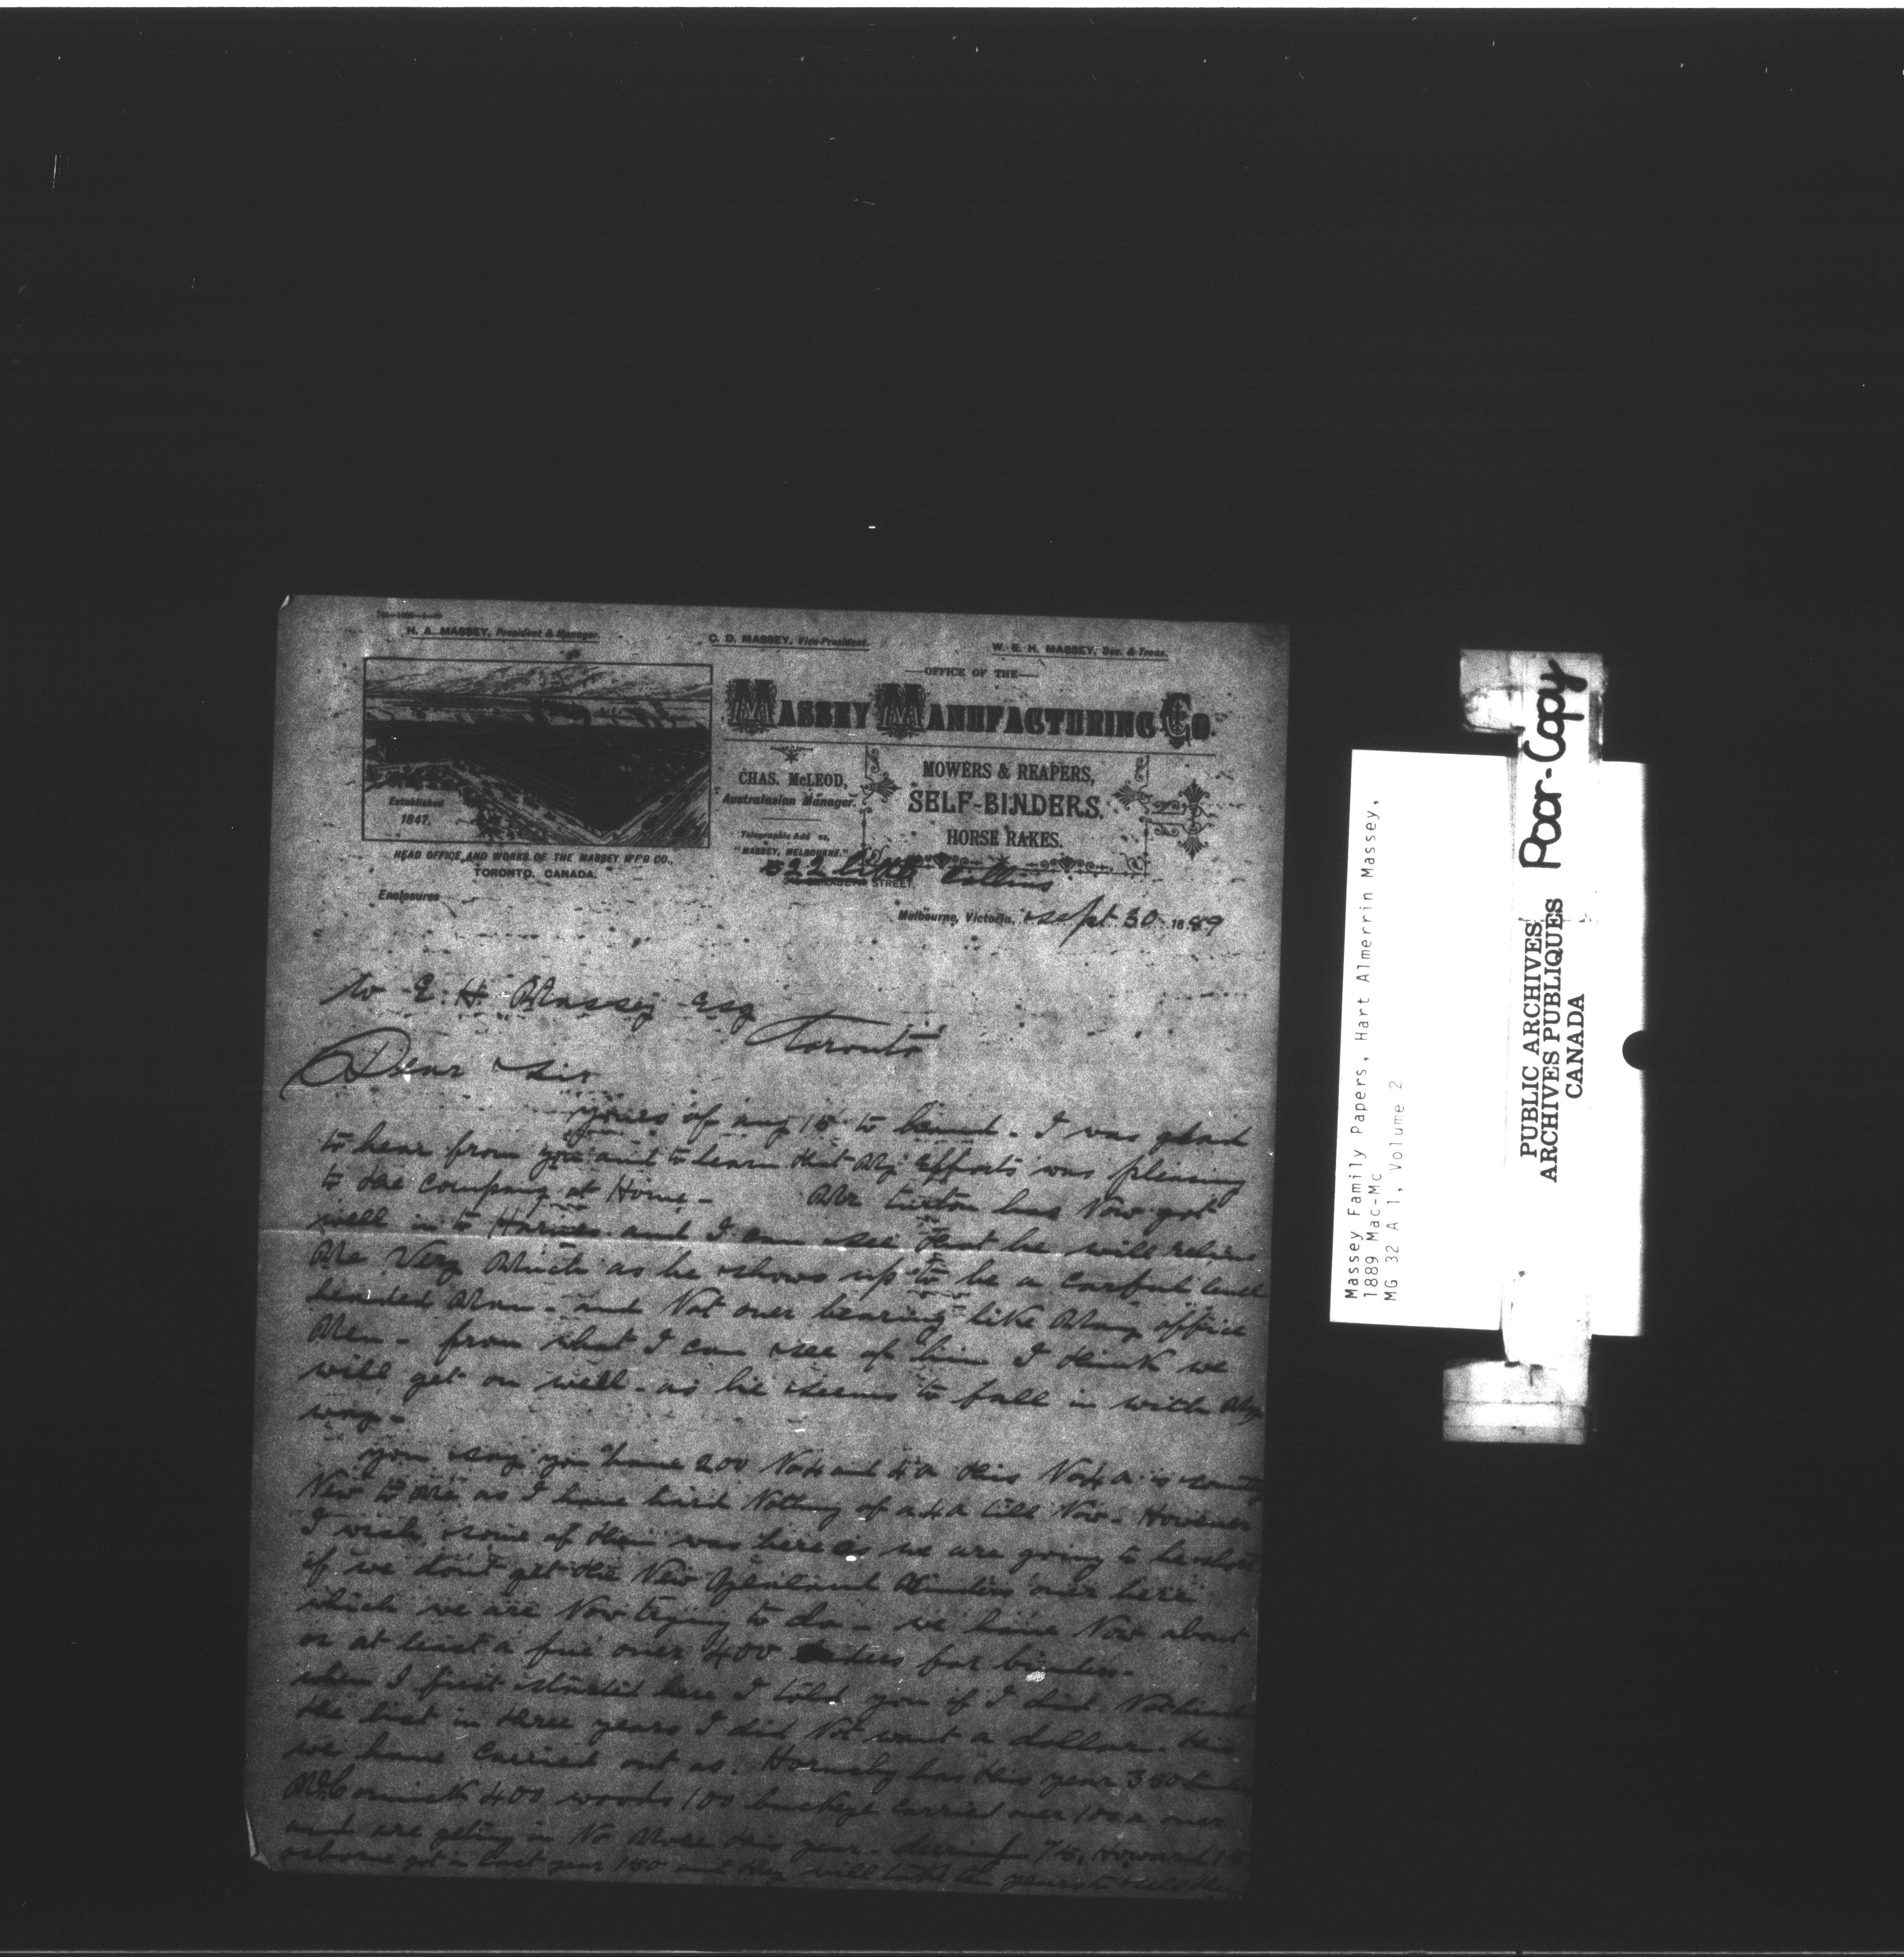 H. A. MASSEY, President & Manager.
C. D. MASSEY, Vice-President.
W. E. H. MASSEY, Sec. & Treas.
OFFICE OF THE
MASSEY MANUFACTURING CO.
CHAS. McLEOD,
Australasian Manager.
MOWERS & REAPERS,
SELF-BINDERS.
HORSE RAKES.
Established
1847.
"MASSEY, MELBOURNE."
HEAD OFFICE AND WORKS OF THE MASSEY M'F'G CO.,
TORONTO, CANADA.
522 Collins
STREET,
Enclosures
Melbourne, Victoria, Sept 30 1889
to E. H. Massey Esq
Toronto
Dear Sir
yours of aug 15 to hand - I was glad
to hear from you and to learn that My Efforts was pleasing
to the company at Home - Mr has Now got
well in to Harness and I can see that he will relieve
Me Very Much as he shows up to be a careful
headed Man - and Not over bearing like Many office
Men - from what I can see of him I think we
will get on well - as he seems to fall in with My
way -
you say you have 200 No 4 and 4a this No 4a is
New to Me as I have hard Nothing of a 4a till Now - However
I wish some of them was here as we are going to be short
if we dont get the New Zealand Binders over here
which we are Now trying to do - we have Now about
or at least a few over 400 for binders -
when I first started here I told you if I did Not
the list in three years I did Not want a dollar - this
we have carried out as Hornsby has this year 350
McCormick 400 woods 100 buckeye carried over 100 over
and are geting in No More this year - Deering 75, Howard
osborne got in last year 150 and they will take ten years to sell
Massey Family Papers, Hart Almerrin Massey,
1889 Mac-Mc
MG 32 A 1, Volume 2
PUBLIC ARCHIVES
ARCHIVES PUBLIQUES
CANADA
Poor-Copy